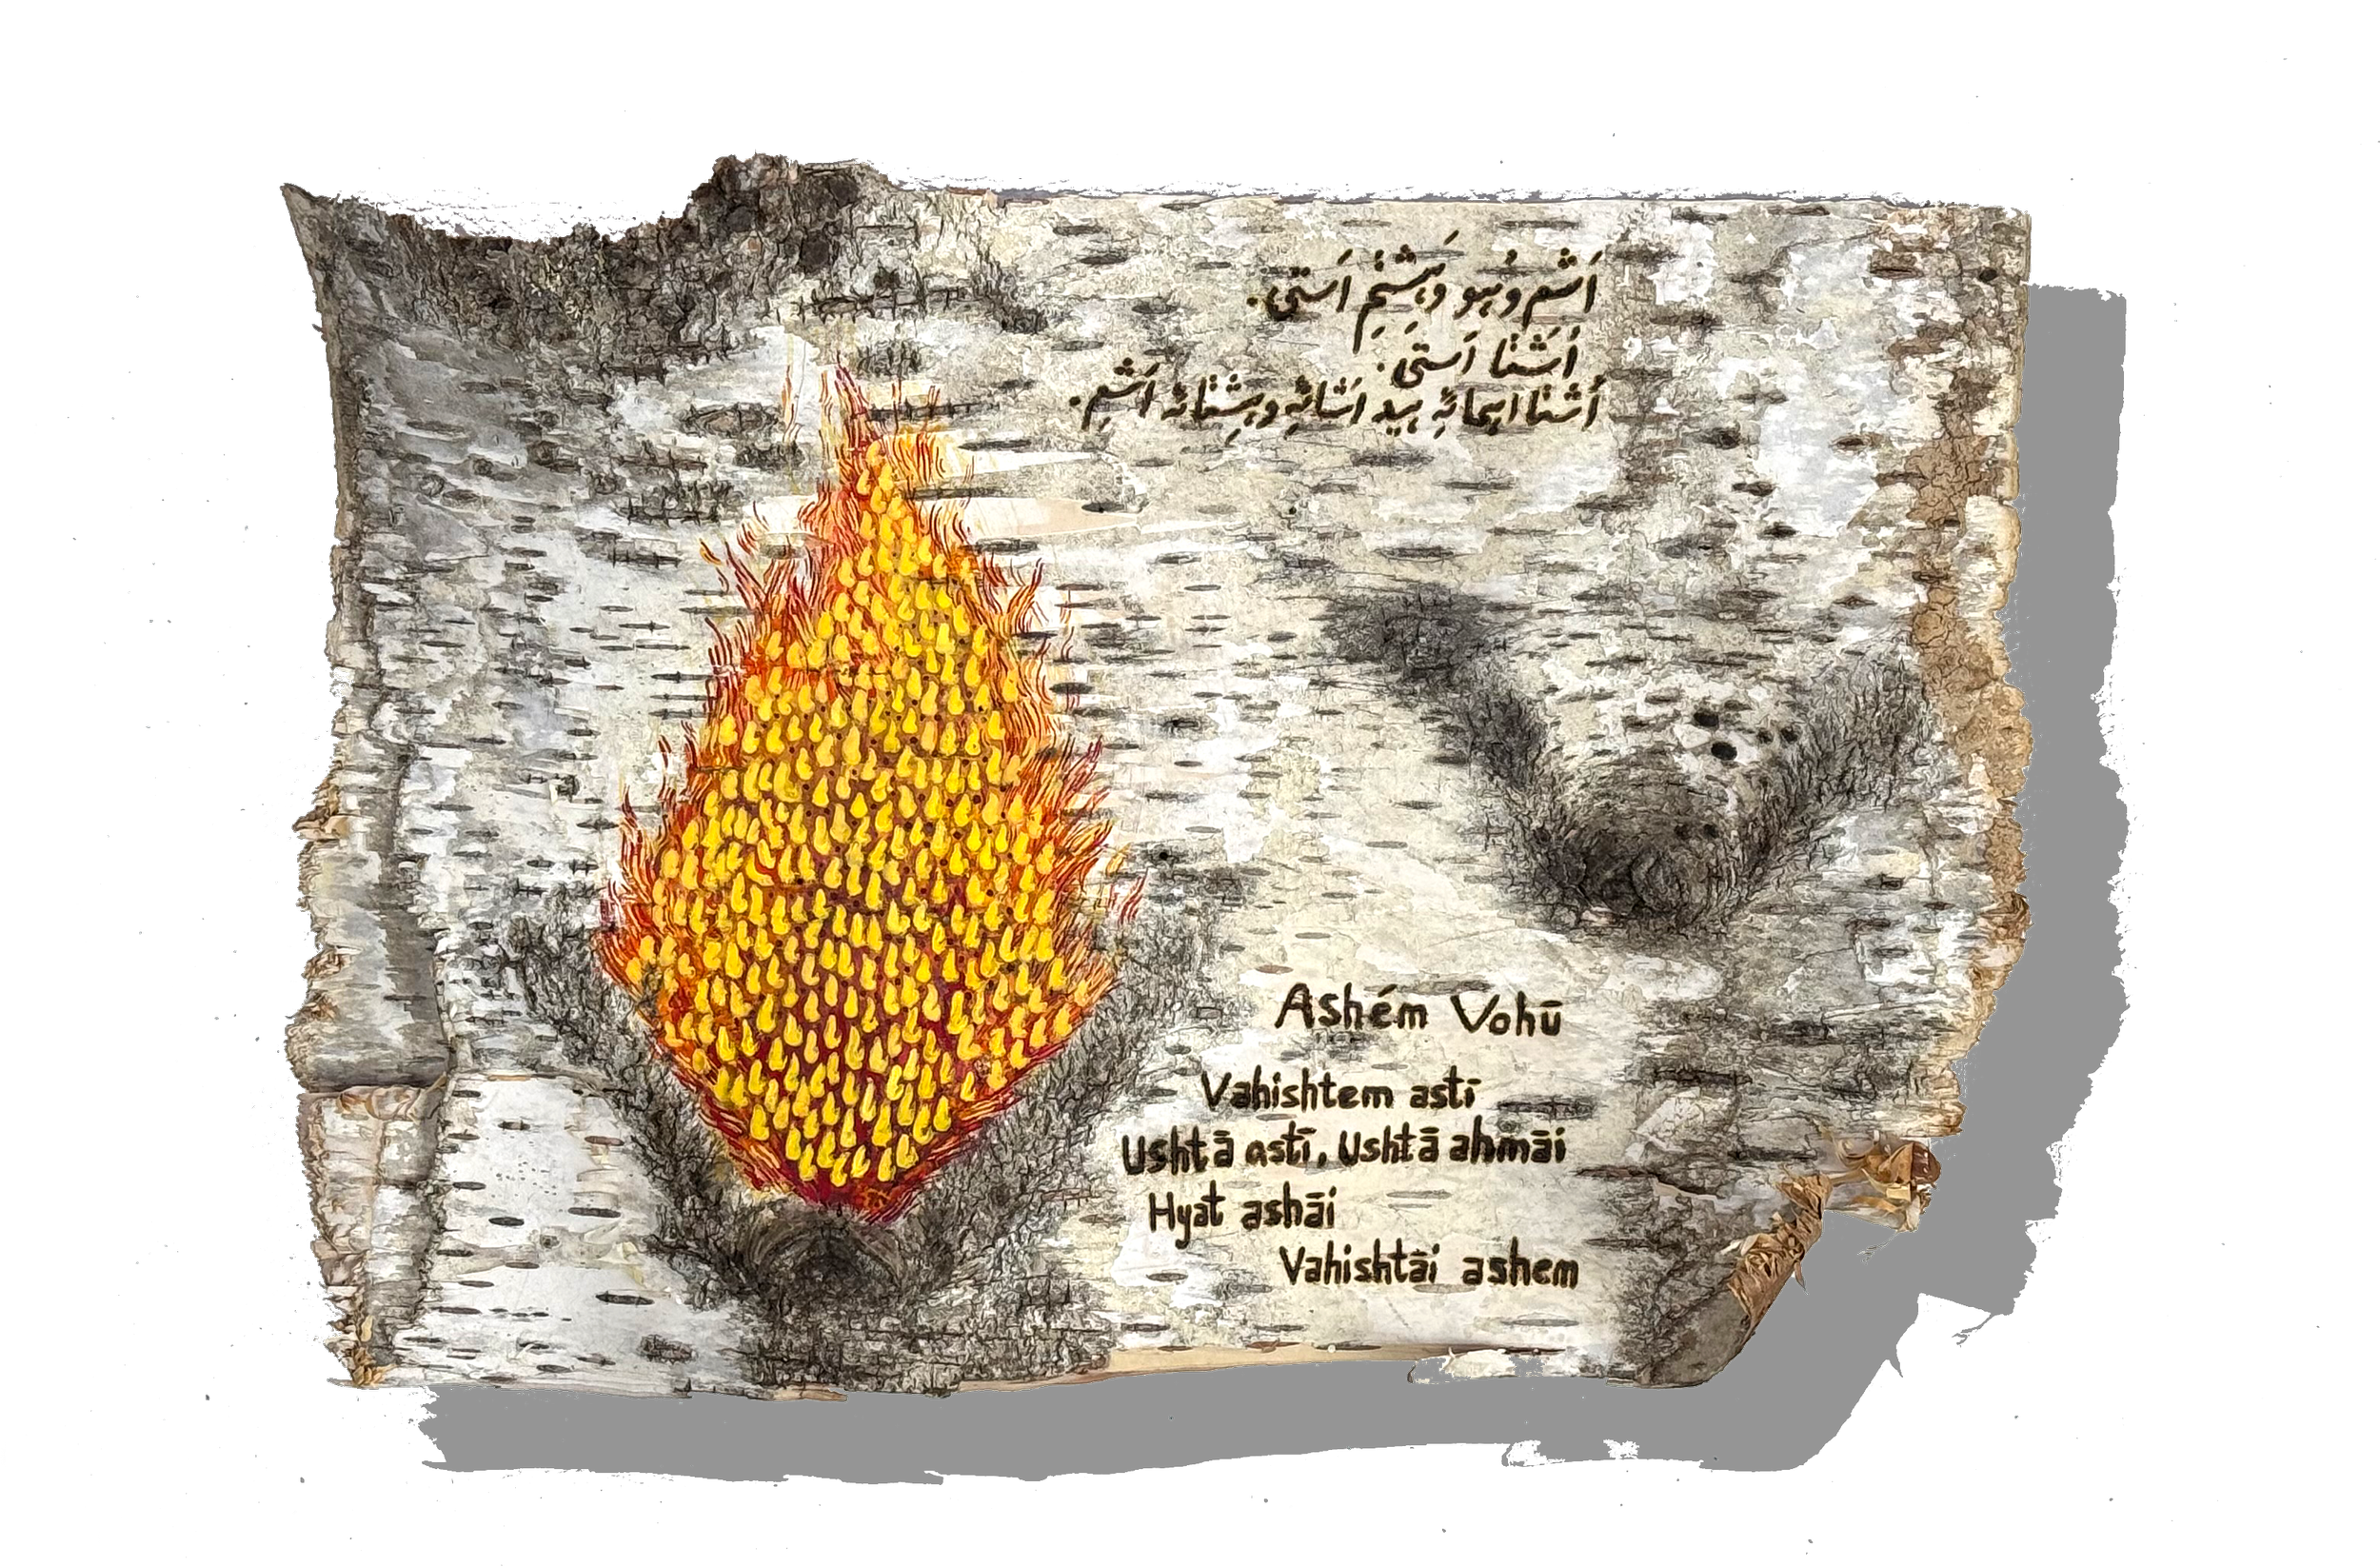 اَشِم وُهو وَهِشتِم اَستی.
اُشتا اَستی.
اُشتا اهمائِه هید اَشائِه وهِشتائه اَشِم.
Ashém Vohū
Vahishtem astī
Ushtā astī, Ushtā ahmāi
Hyat ashāi
Vahishtāi ashem